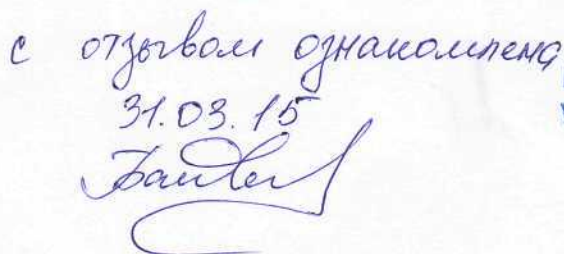 с отзывом ознакомлена
31.03.15